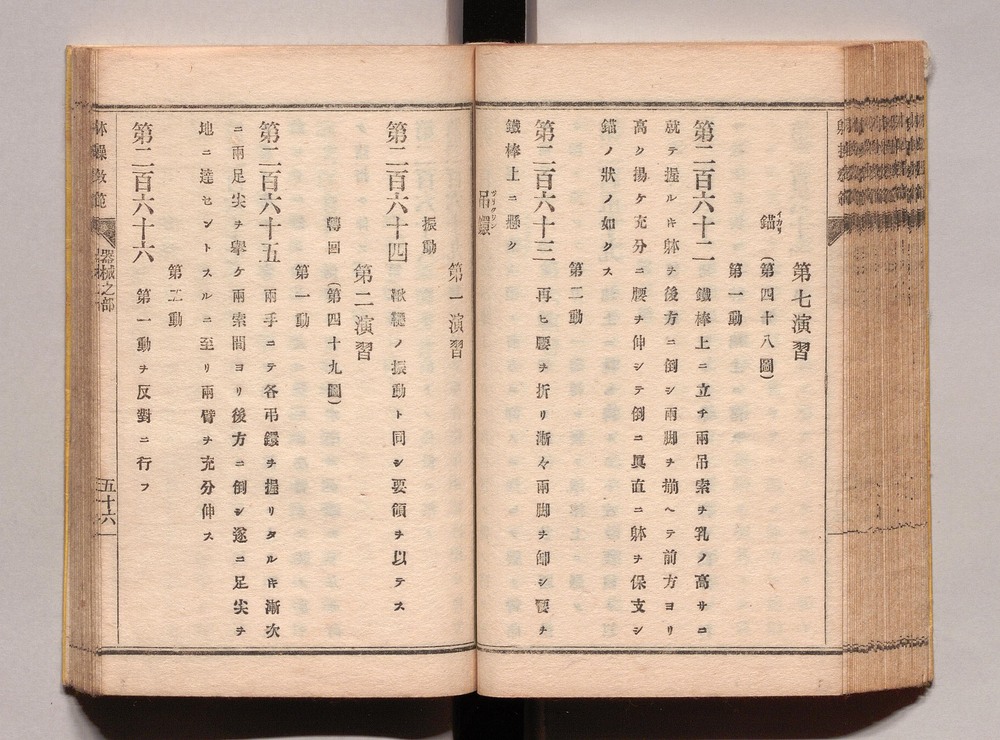 第七演習
錨イカリ（第四十八圖）
第一動
第二百六十二 鐵棒上ニ立チ兩吊索ヲ乳ノ高サニ
就テ握ルキ躰ヲ後方ニ倒シ兩脚ヲ揃ヘテ前方ヨリ
高ク揚ケ充分ニ腰ヲ伸シテ倒ニ眞直ニ躰ヲ保支シ
錨ノ狀ノ如クス
第二動
第二百六十三 再ヒ腰ヲ折リ漸々兩脚ヲ卸シ腰ヲ
鐵棒上ニ懸ク
吊鐶ツリクワン
第一演習
振動
第二百六十四 鞦韆ノ振動ト同シ要領ヲ以テス
第二演習
轉回（第四十九圖）
第一動
第二百六十五 兩手ニテ各弔鐶ヲ握リタルキ漸次
ニ兩足尖ヲ擧ケ兩索間ヨリ後方ニ倒シ遂ニ足尖ヲ
地ニ達セントスルニ至リ兩臂ヲ充分伸ス
第二動
第二百六十六 第一動ヲ反對ニ行フ
躰操敎範 器械之部 五十六